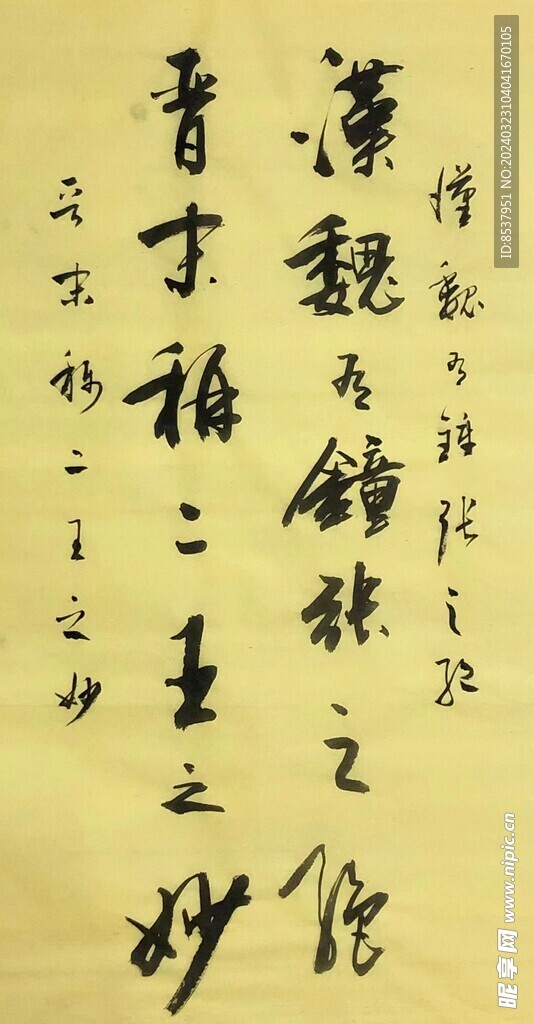 漢魏有鍾張之絕
漢魏有鐘張之絕
晋末稱二王之妙
晋末稱二王之妙
ID:8537951 NO:20240323104041670105
昵享网 www.nipic.cn